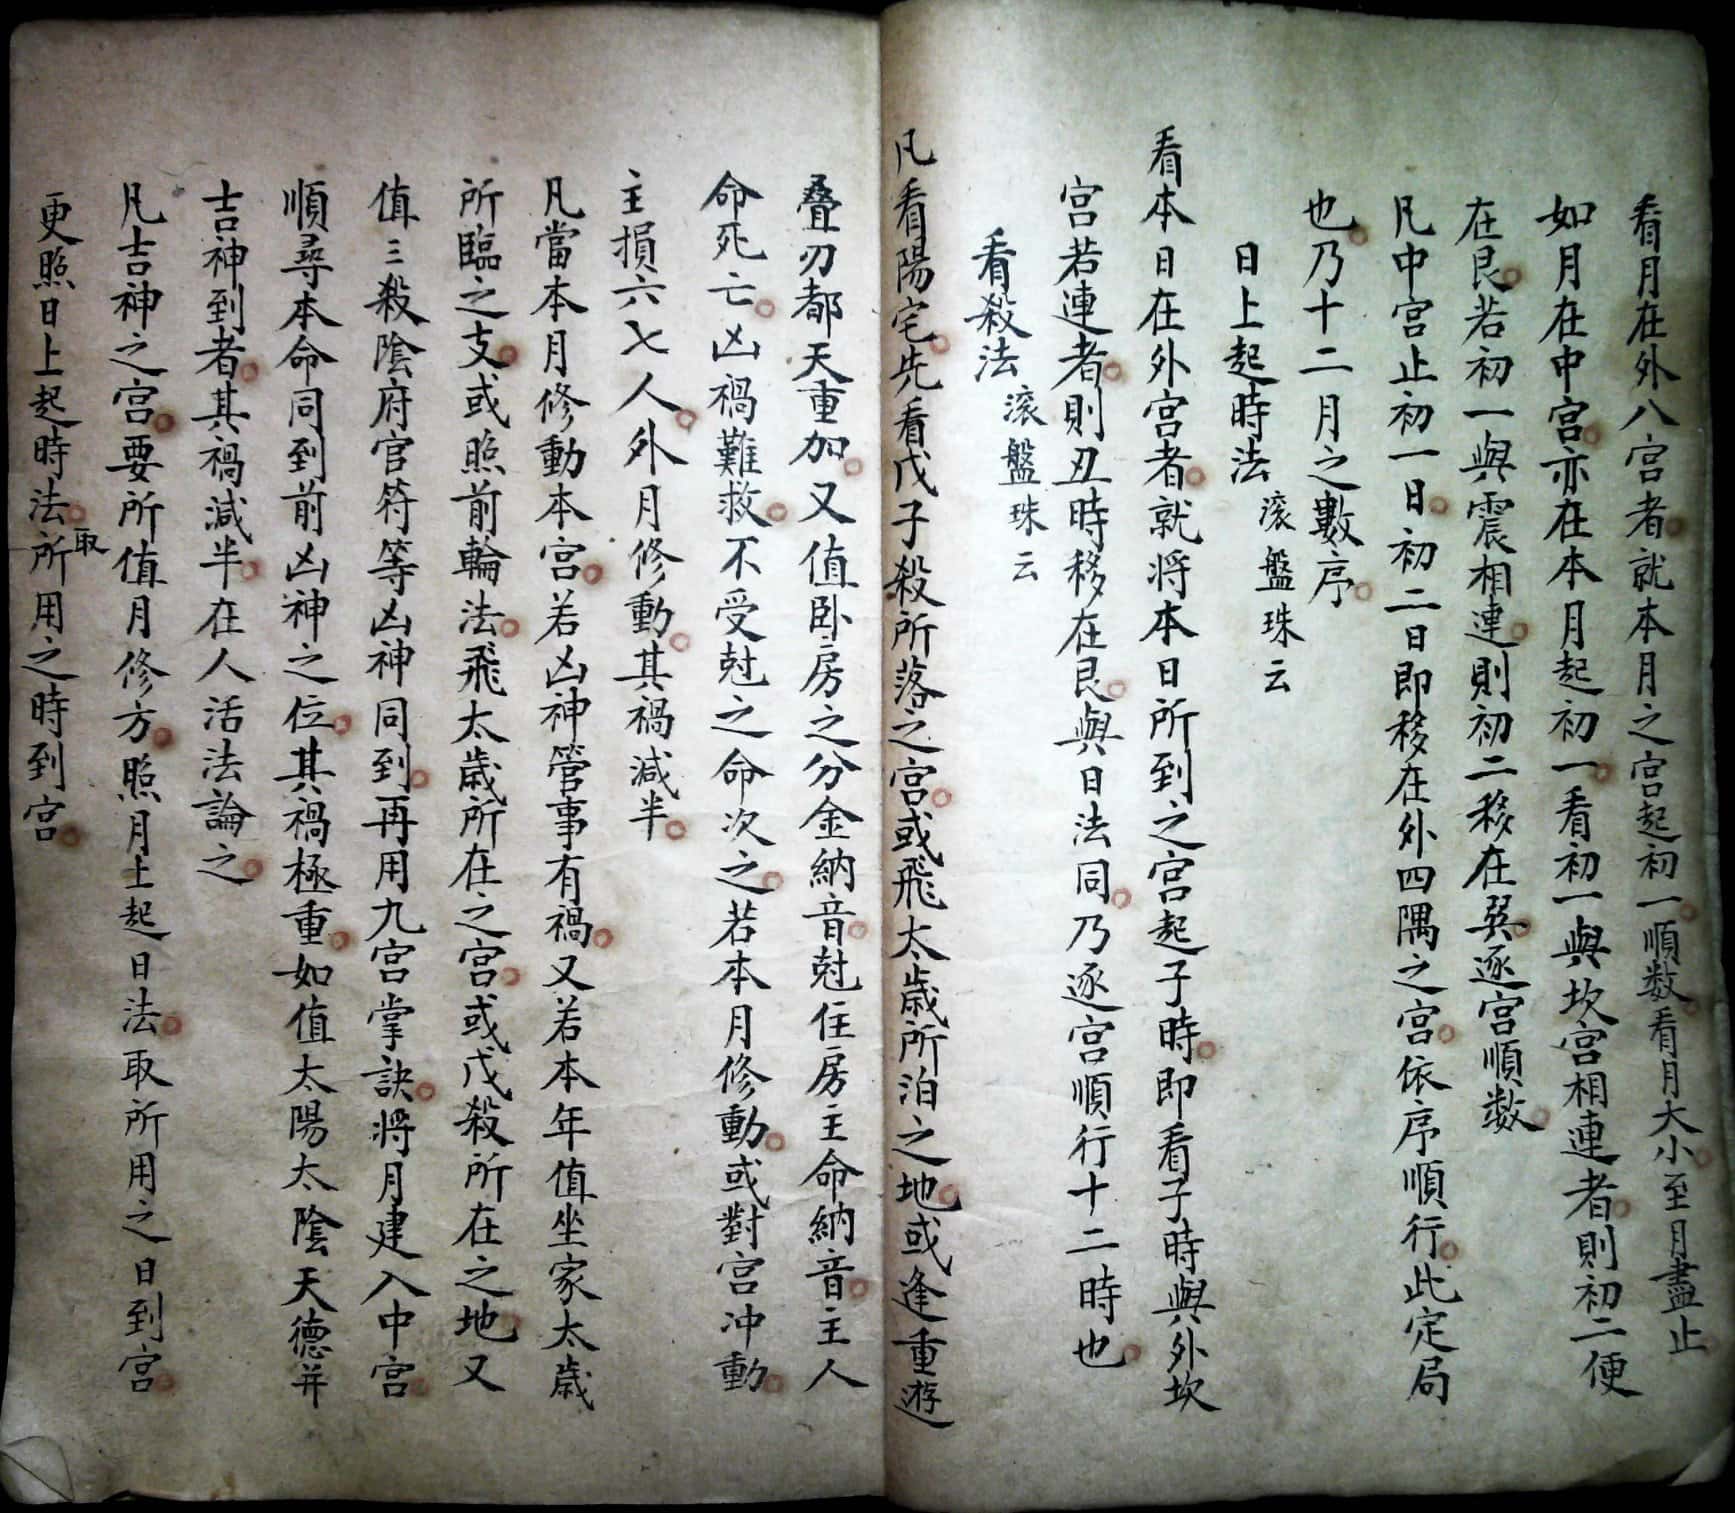 看月在外八宮者就本月之宮起初一順数看月大小至月盡止
如月在中宮亦在本月起初一看初一與坎宮相連者則初二便
在艮若初一與震相連則初二移在巽逐宮順数
凡中宮止初一日初二日即移在外四隅之宮依序順行此定局
也乃十二月之數序
日上起時法 滚盤珠云
看本日在外宮者就将本日所到之宮起子時即看子時與外坎
宮若連者則丑時移在艮與日法同乃逐宮順行十二時也
看殺法 滚盤珠云
凡看陽宅先看戊子殺所落之宮或飛太歲所泊之地或逢重遊
叠刃都天重加又值卧房之分金納音尅住房主命納音主人
命死亡凶禍難救不受尅之命次之若本月修動或對宮冲動
主損六七人外月修動其禍減半
凡當本月修動本宮若凶神管事有禍又若本年值坐家太歲
所臨之支或照前輪法飛太歲所在之宮或戊殺所在之地又
值三殺陰府官符等凶神同到再用九宮掌訣将月建入中宮
順尋本命同到前凶神之位其禍極重如值太陽太陰天德并
吉神到者其禍減半在人活法論之
凡吉神之宮要所值月修方照月上起日法取所用之日到宮
更照日上起時法取所用之時到宮